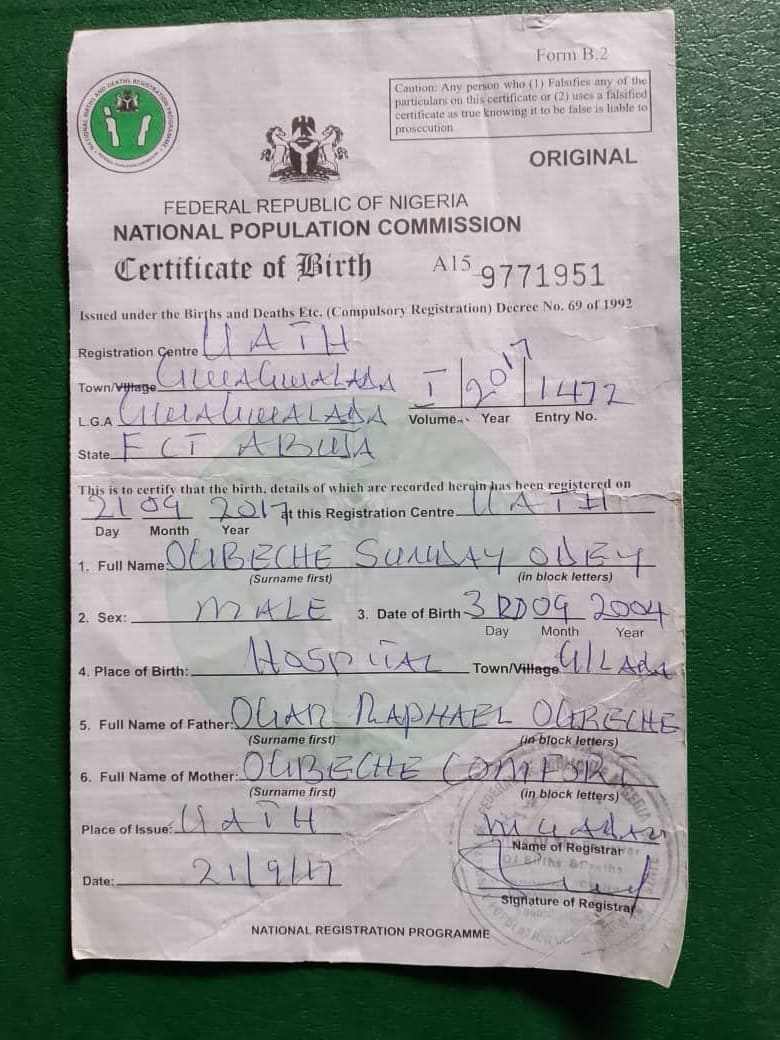 Form B.2
Caution: Any person who (1) Falsifies any of the
particulars on this certificate or (2) uses a falsified
certificate as true knowing it to be false is liable to
prosecution
NATIONAL BIRTHS AND DEATHS REGISTRATION PROGRAMME
ORIGINAL
FEDERAL REPUBLIC OF NIGERIA
NATIONAL POPULATION COMMISSION
Certificate of Birth A15 9771951
Issued under the Births and Deaths Etc. (Compulsory Registration) Decree No. 69 of 1992
Registration Centre UATH
Town/Village GWAGWALADA I 2017 1472
L.G.A GWAGWALADA Volume Year Entry No.
State FCT ABUJA
This is to certify that the birth, details of which are recorded herein has been registered on
21 09 2017 at this Registration Centre UATH
Day Month Year
1. Full Name: OGBECHE SUNDAY ODEY
(Surname first) (in block letters)
2. Sex: MALE 3. Date of Birth 3RD 09 2004
Day Month Year
4. Place of Birth: HOSPITAL Town/Village G/LADA
5. Full Name of Father: OGAR RAPHAEL OGBECHE
(Surname first) (in block letters)
6. Full Name of Mother: OGBECHE COMFORT
(Surname first) (in block letters)
Place of Issue: UATH
Name of Registrar
Date: 21/9/17
Signature of Registrar
NATIONAL REGISTRATION PROGRAMME